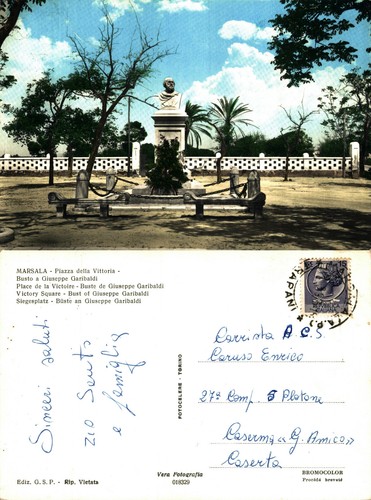 MARSALA - Piazza della Vittoria -
Busto a Giuseppe Garibaldi
Place de la Victoire - Buste de Giuseppe Garibaldi
Victory Square - Bust of Giuseppe Garibaldi
Siegesplatz - Büste an Giuseppe Garibaldi
Sinceri saluti
zio Santo
e famiglia
FOTOCELERE - TORINO
TRAPANI
Carrista A.C.S.
Caruso Enrico
27ª Comp. 5 Plotone
Caserma G. Amico
Caserta
Ediz. G. S. P. - Rip. Vietata
Vera Fotografia
018329
BROMOCOLOR
Procédé breveté